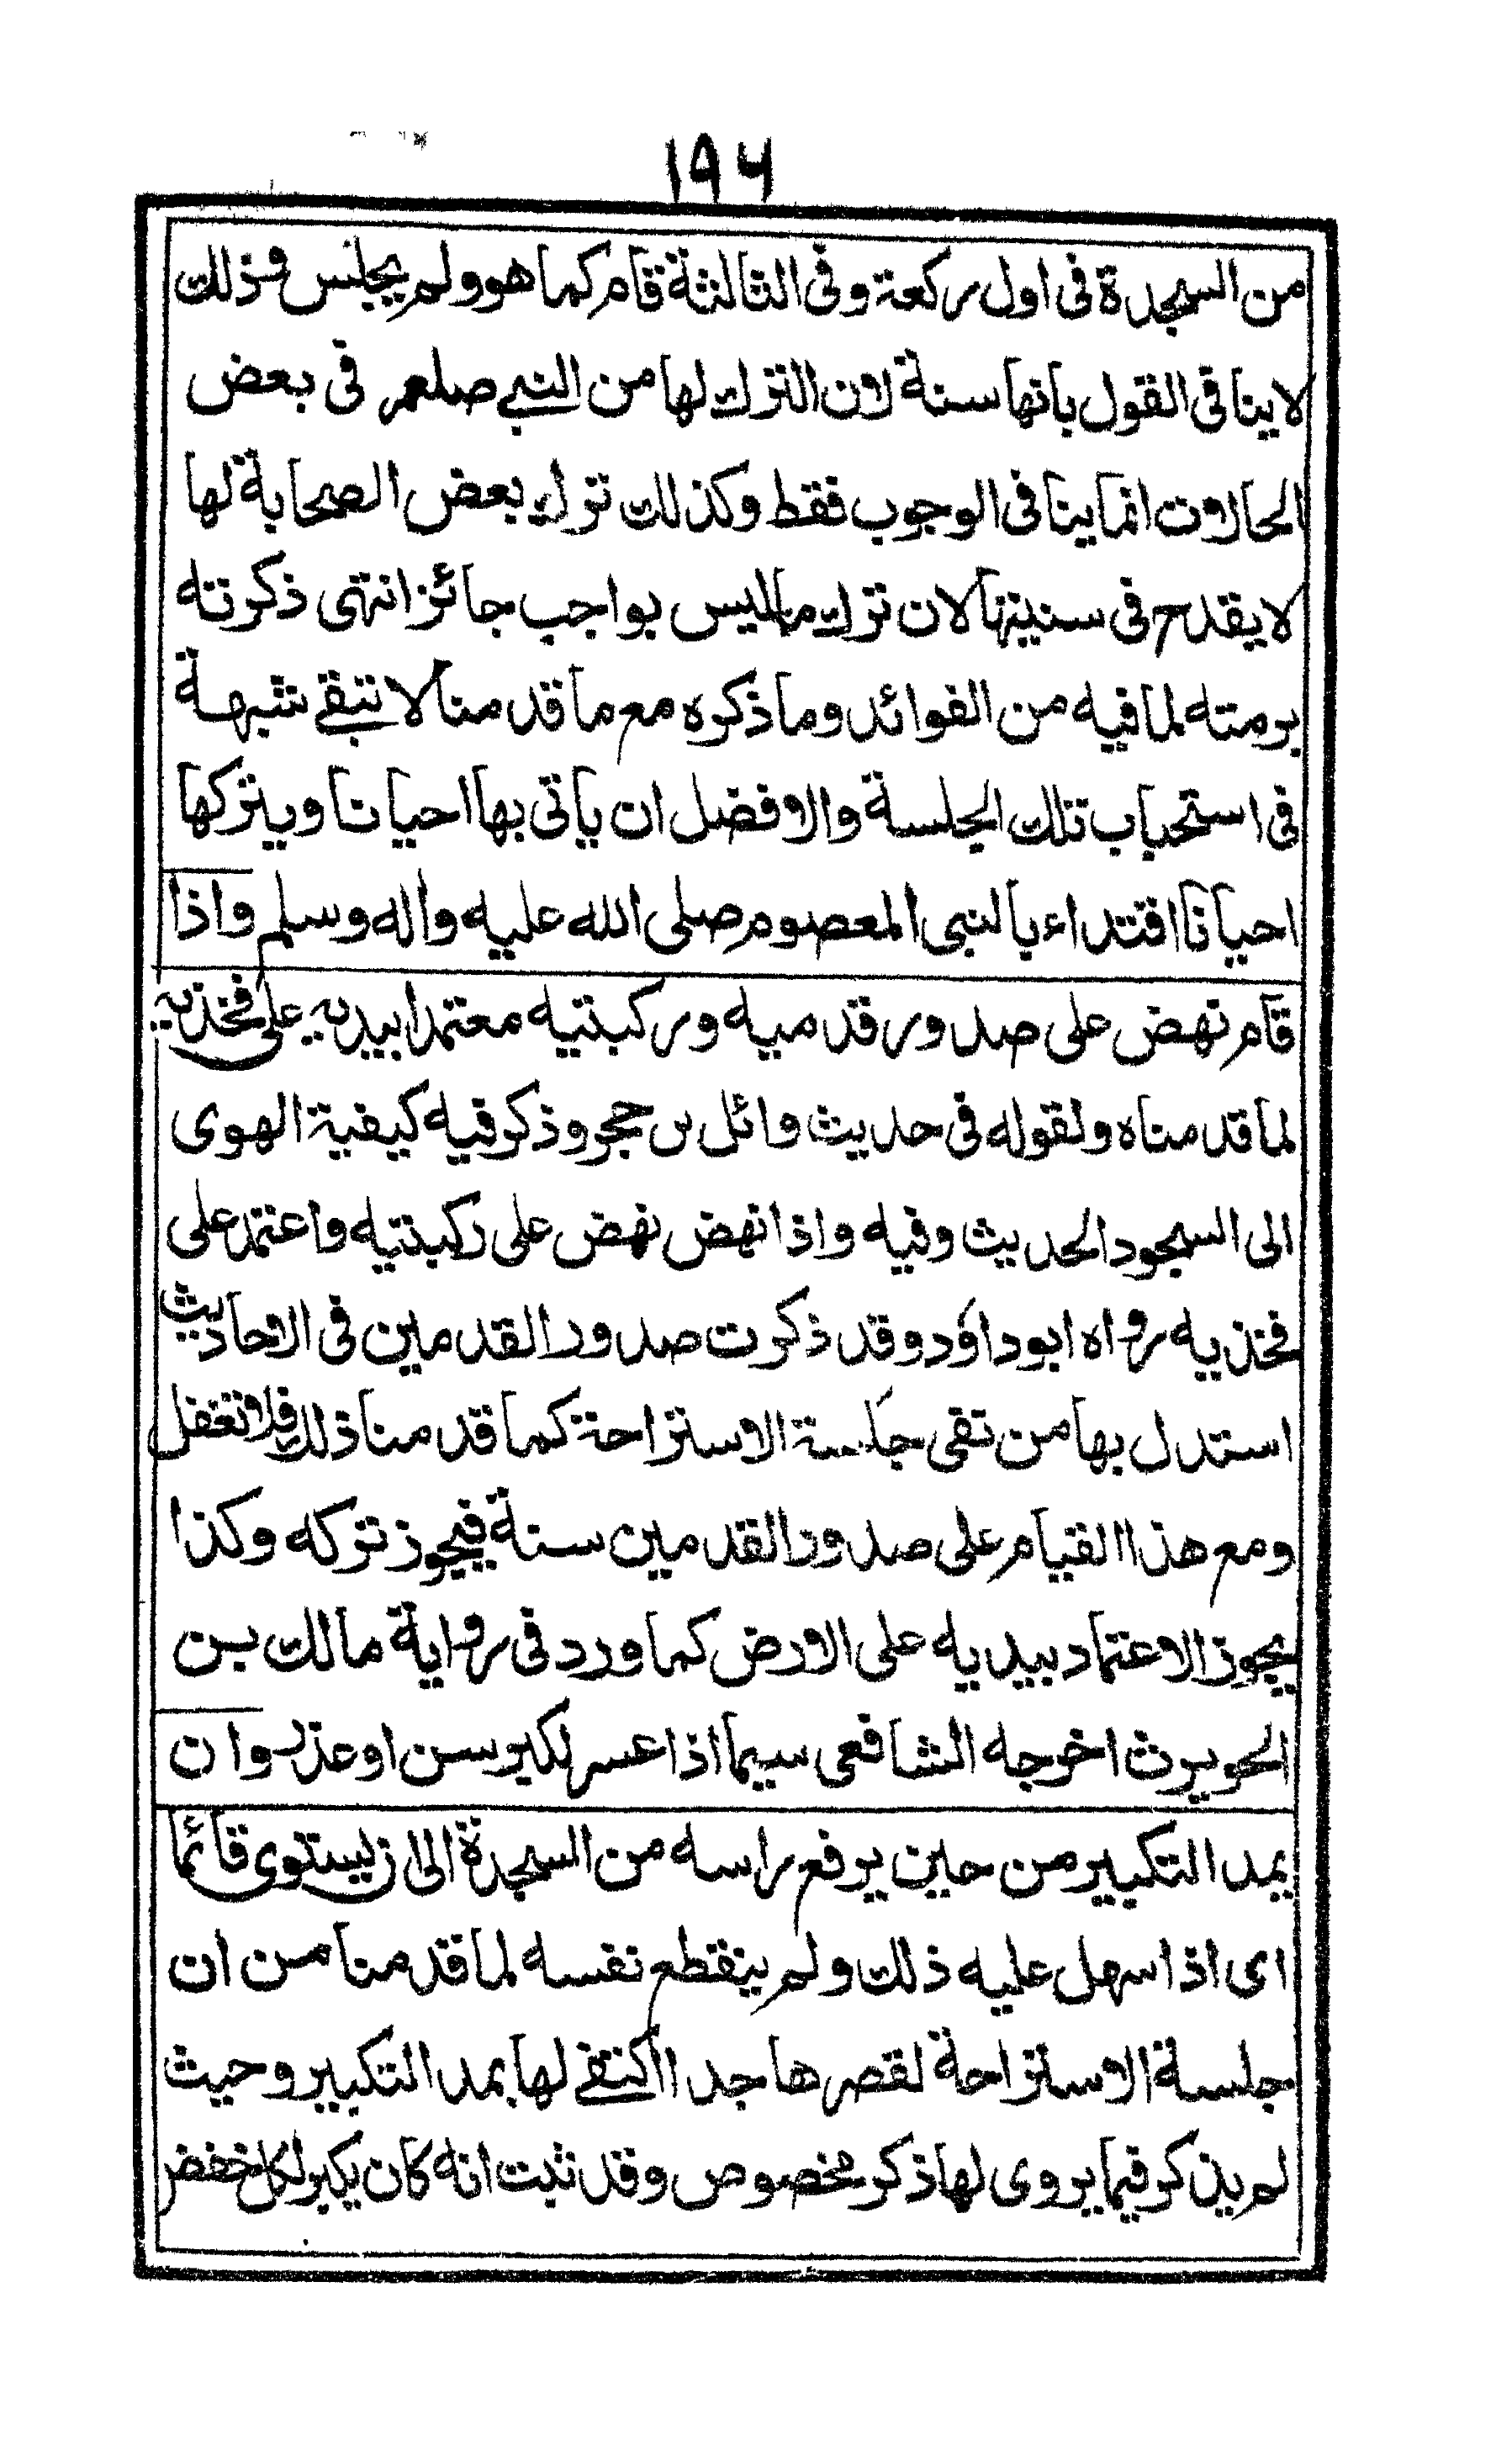 ١٩٦
من السجدة فى اول ركعة وفى الثالثة قام كما هو ولم يجلس فذلك
لا ينافى القول بانها سنة لان الترك لها من النبي صلعم فى بعض
الحالات انما ينافى الوجوب فقط وكذلك ترك بعض الصحابة لها
لا يقدح فى سنيتها لان ترك ما ليس بواجب جائز انتهى ذكرته
برمته لما فيه من الفوائد وما ذكره مع ما قدمنا لا تبقي شبهة
فى استحباب تلك الجلسة والافضل ان ياتى بها احيانا ويتركها
احيانا اقتداء بالنبى المعصوم صلى الله عليه واله وسلم واذا
قام نهض على صدور قدميه وركبتيه معتمدا بيديه على فخذيه
لما قدمناه ولقوله فى حديث وائل بن حجر وذكر فيه كيفية الهوى
الى السجود الحديث وفيه واذا نهض نهض على ركبتيه واعتمد على
فخذيه رواه ابو داؤد وقد ذكرت صدور القدمين فى الاحاديث
استدل بها من نفى جلسة الاستراحة كما قدمنا ذلك فلا تغفل
ومع هذا القيام على صدور القدمين سنة فيجوز تركه وكذا
يجوز الاعتماد بيديه على الارض كما ورد فى رواية مالك بن
الحويرث اخرجه الشافعى سيما اذا عسر لكبر سن او عذر وان
يمد التكبير من حين يرفع راسه من السجدة الى ان يستوى قائما
اى اذا سهل عليه ذلك ولم ينقطع نفسه لما قدمنا من ان
جلسة الاستراحة لقصرها جدا اكتفي لها بمد التكبير وحيث
لم يذكر فيما يروى لها ذكر مخصوص وقد ثبت انه كان يكبر لكل خفض